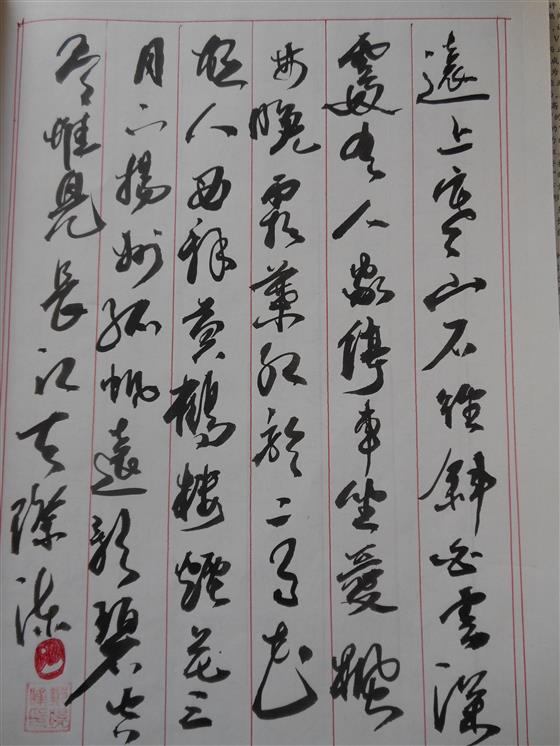 遠上寒山石徑斜白雲深
處有人家停車坐愛楓
林晚霜葉紅於二月花
故人西辞黄鶴樓煙花三
月下揚州孤帆遠影碧空
尽惟見長江天際流